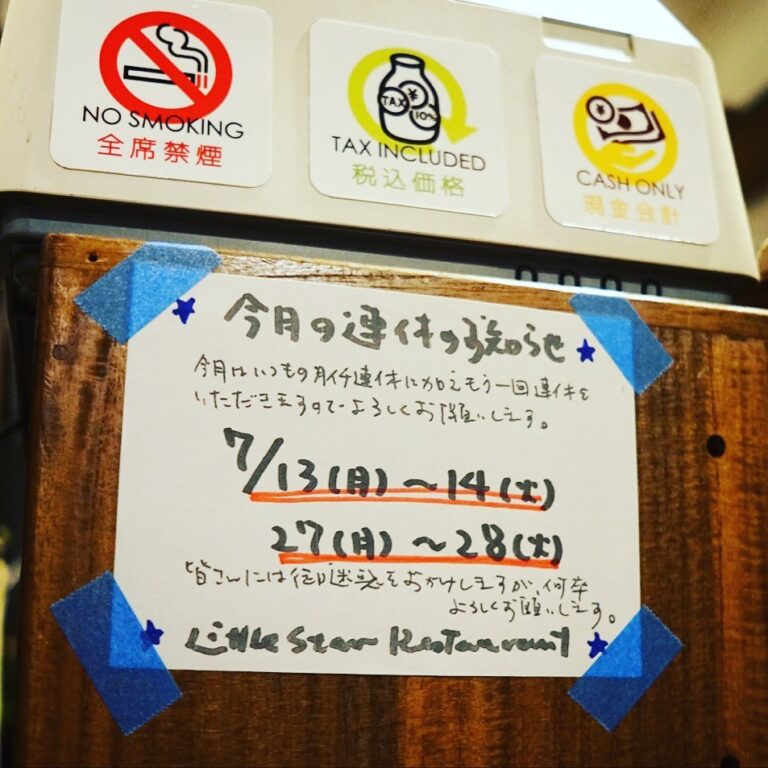 NO SMOKING
全席禁煙
TAX 10%
TAX INCLUDED
税込価格
¥
CASH ONLY
現金会計
今月の連休のお知らせ
今月はいつもの月イチ連休に加えもう一回連休を
いただきますのでよろしくお願いします。
7/13(月)〜14(火)
27(月)〜28(火)
皆さんには御迷惑をおかけしますが、何卒
よろしくお願いします。
Little Star Restaurant